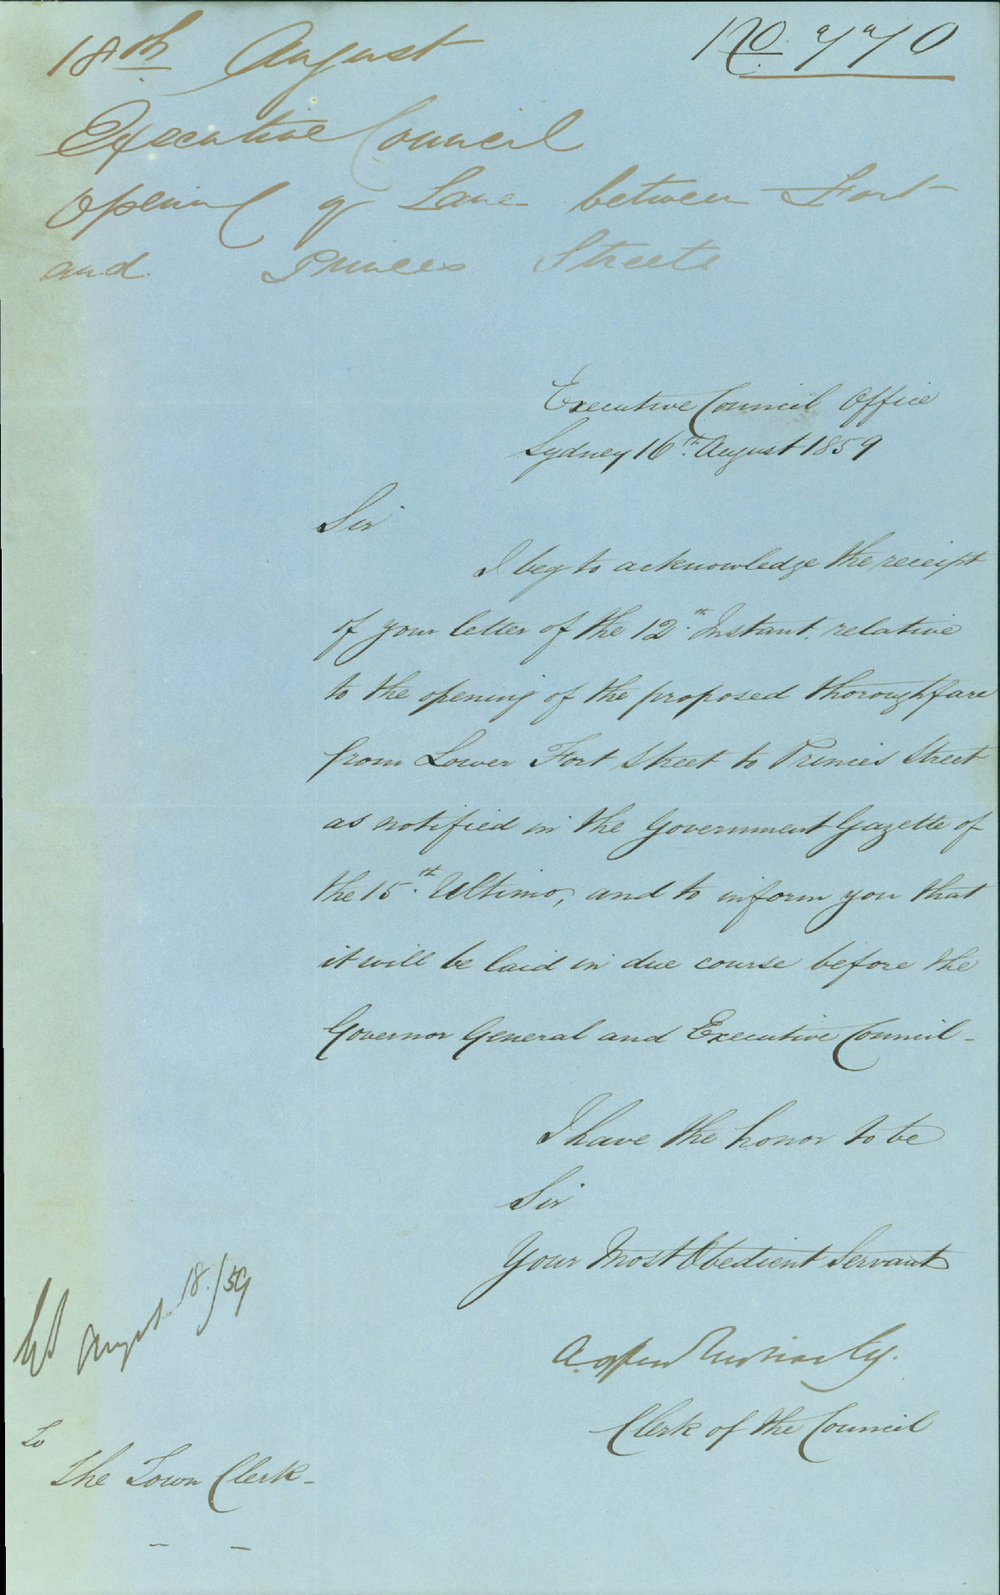 18th August
No. 770
Executive Council
Opening of Lane between Fort
and Princes Streets
Executive Council Office
Sydney 16th August 1859
Sir
I beg to acknowledge the receipt
of your letter of the 12th Instant. relative
to the opening of the proposed thoroughfare
from Lower Fort Street to Princes Street
as notified in the Government Gazette of
the 15th Ultimo, and to inform you that
it will be laid in due course before the
Governor General and Executive Council -
I have the honor to be
Sir
Your Most Obedient Servant
Clerk of the Council
August 18/59
To
The Town Clerk -